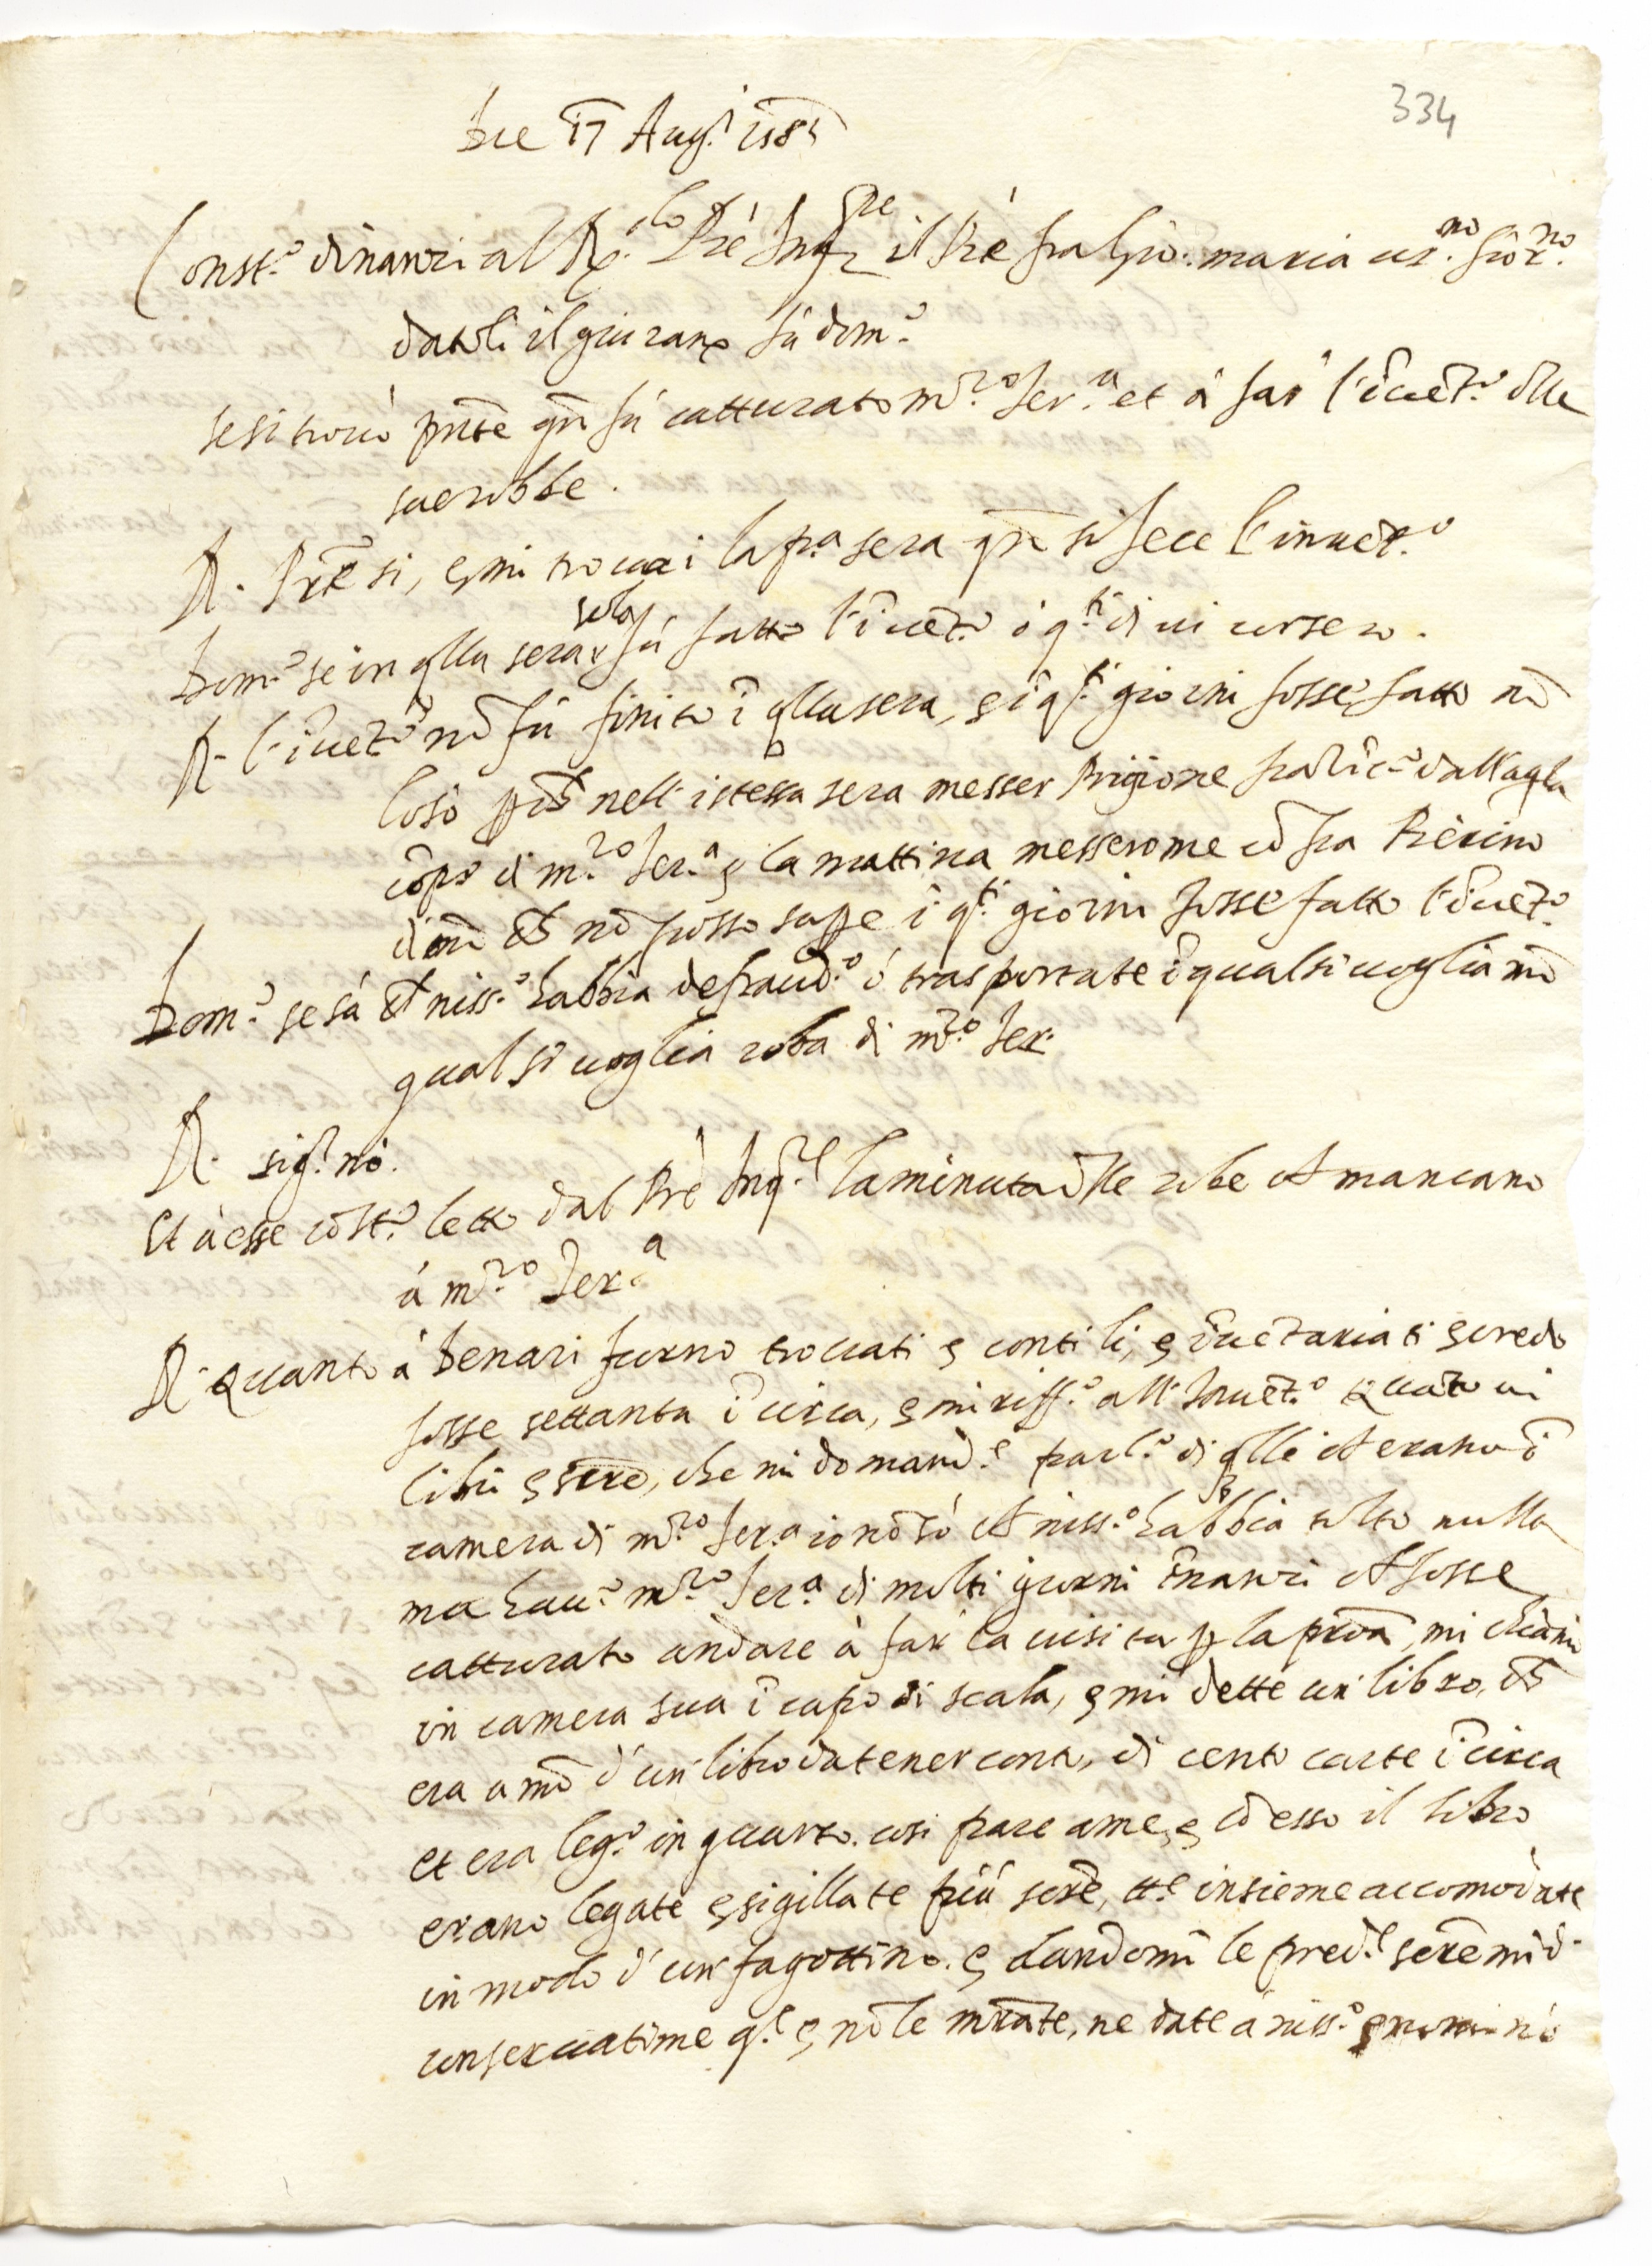 334
Die 17 Aug.ti 1585
Const.o dinanzi al R.do Pre Inq.re il Pre fra Gio: maria
datoli il giuram.to fú dom.o
se si trovò pnte qn fú catturato m.ro Ier.a et à far l'ĩvẽt.o dlle
sue robbe.
R. Prẽ si, e mi trovai la p.a sera qn si fece l'invẽt.o
Dom.o se in qlla sera solo fú fatto l'ĩvẽt.o ó q.ti dì vi corsero.
R. l'ĩvẽt.o nõ fú finito ĩ qlla sera, e ĩ q.ti giorni fosse fatto nõ
lo sò p ch nell'istessa sera messer Prigione
di m.ro Ier.a e la mattina messero me cõ fra Pierino
ch nõ posso sape ĩ q.ti giorni fosse fatto l'ĩvẽt.o
Dom.o se sá ch niss.o habbia defraud.o ó trasportate ĩ qualsivoglia mõ
qual si voglia roba di m.ro Ier.
R. sig.r nó.
Et à esse cõst.o letto dal Pre Inq.re la minuta dlle robe ch mancano
á m.ro Ier.a
R. Quanto á denari furno trovati e contili, e ĩvẽtariati e credo
fosse settanta ĩ circa, e mi riff.o all'Invẽt.o Quãto ai
libri e scrẽ, che mi domand.e parl.o di qlli ch erano ĩ
camera di m.ro Ier.a io nõ só ch niss.o habbia tolto nulla
ma hav.o m.ro Ier.a di molti giorni ĩnanzi ch fosse
catturato andare à far la visita p la prõa, mi chiamò
in camera sua ĩ capo di scala, e mi dette un libro, ch
era a mõ d'un libro da tener conti, di cento carte ĩ circa
et era leg.o in quarto. cosi pare a me, e cõ esso il libro
erano legate e sigillate più scrẽ, tt.e insieme accomodate
in modo d'un fagottino. e dandomi le pred.e scrẽ mi d.
conservatime q.e e nõ le mrate, ne date á niss.o